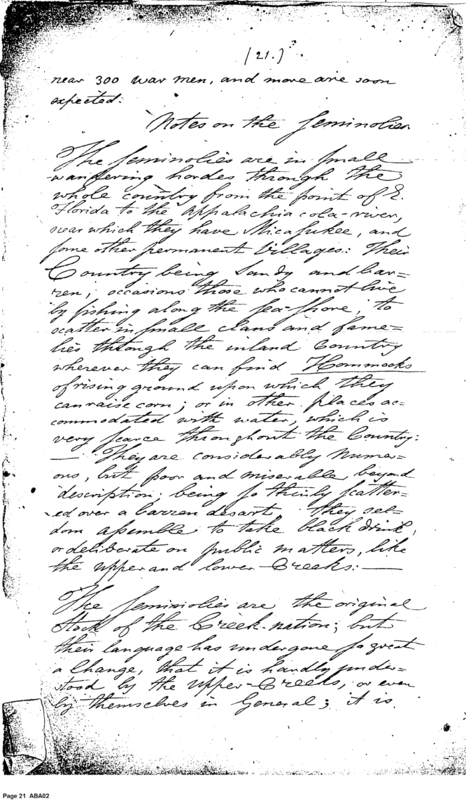 (21.)
near 300 war men, and more are soon
expected.
Notes on the Seminolies.
The Seminolies are in small
wandering hordes through the
whole country from the point of E.
Florida to the Appalachiacola-river,
near which they have Micasukee, and
some other permanent Villages: Their
Country being Sandy and bar=
ren; occasions those who cannot live
by fishing along the sea-shore, to
scatter in small clans and fame=
lies through the inland Country
wherever they can find Hommocks
of rising ground upon which they
can raise corn; or in other places ac=
commodated with water, which is
very scarce throughout the Country:
— They are considerably nume=
ous, but poor and miserable beyond
description; being so thinly scatter=
ed over a barren desart, They sel=
dom assemble to take black drink,
or deliberate on public matters, like
the upper and lower Creeks: —
The Seminiolies are the original
Stock of the Creek-nation; but
their language has undergone so great
a Change, that it is hardly under=
stood by the Upper-Creeks, or even
by themselves in General; it is
Page 21 ABA02